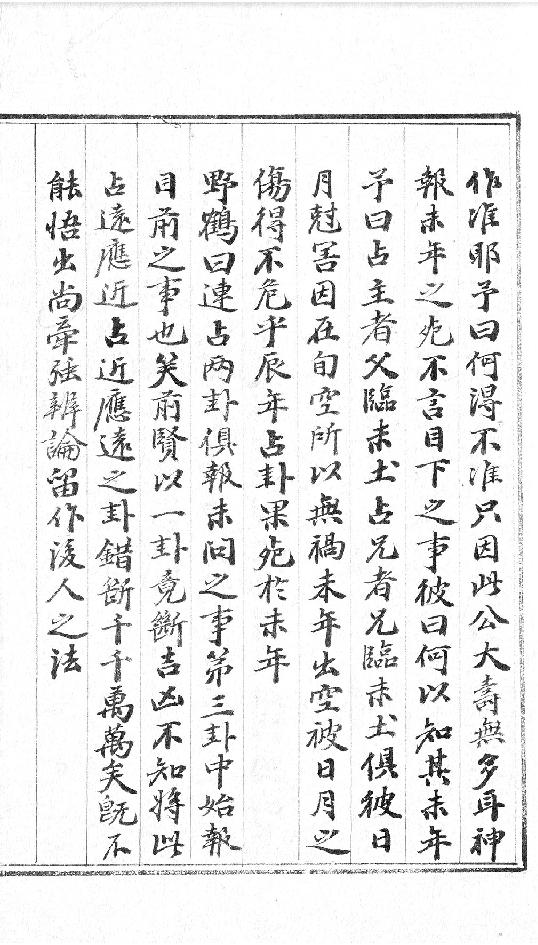 作准耶予曰何得不准只因此公大壽無多耳神
報未年之死不言目下之事彼曰何以知其未年
予曰占主者父臨未土占兄者兄臨未土俱彼日
月尅害因在旬空所以無禍未年出空被日月之
傷得不危乎辰年占卦果死於未年
野鶴曰連占两卦俱報未问之事苐三卦中始報
目前之事也矣前賢以一卦竟斷吉凶不知將此
占遠應近占近應遠之卦錯斷千千萬萬矣既不
能悟出尚牽强辨論留作後人之法